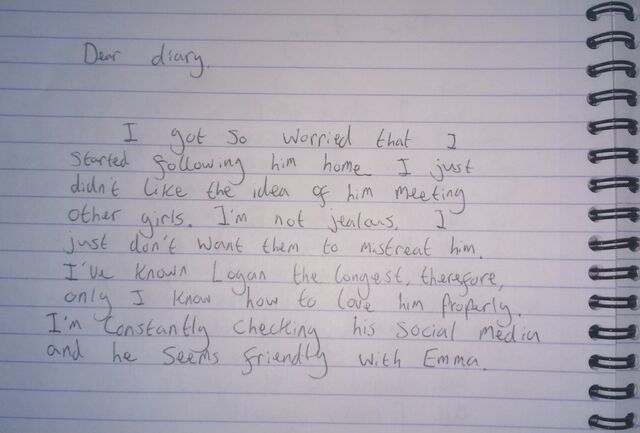 Dear diary.
I got so worried that I
started following him home I just
didn't like the idea of him meeting
other girls. I'm not jealous, I
just don't want them to mistreat him.
I've known Logan the longest, therefore,
only I know how to love him properly.
I'm constantly checking his social media
and he seems friendly with Emma.